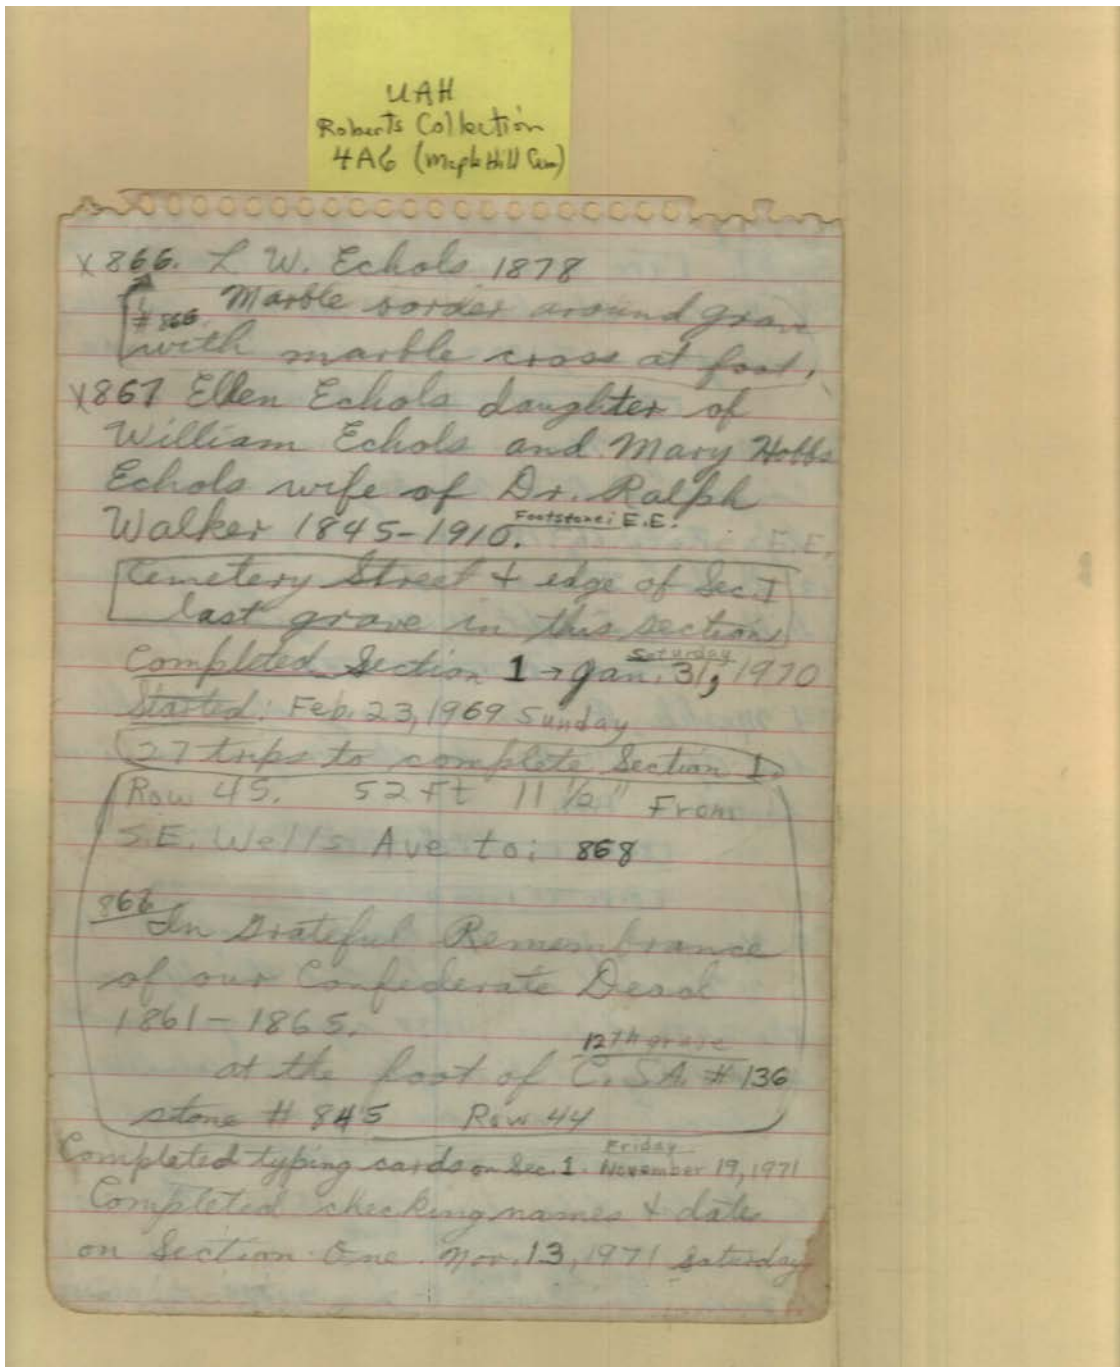 UAH
Roberts Collection
4A6 (Maple Hill Cem)
X866. L W. Echols 1878
#866. Marble border around grave
with marble cross at foot.
X867 Ellen Echols daughter of
William Echols and Mary Hobbs
Echols wife of Dr. Ralph
Walker 1845-1910. Footstone: E.E.
Cemetery Street + edge of Sec. I
last grave in this section
Saturday
Completed Section 1 → Jan. 31, 1970
Started: Feb. 23, 1969 Sunday
27 trips to complete Section I.
Row 45. 52 Ft 11 1/2" From
S.E. Wells Ave to: 868
868
In Grateful Remembrance
of our Confederate Dead
1861-1865.
12th grave
at the foot of C.S.A. #136
stone #845 Row 44
Friday
Completed typing cards on Sec. 1. November 19, 1971
Completed checking names + dates
on Section One. Nov. 13, 1971 Saturday